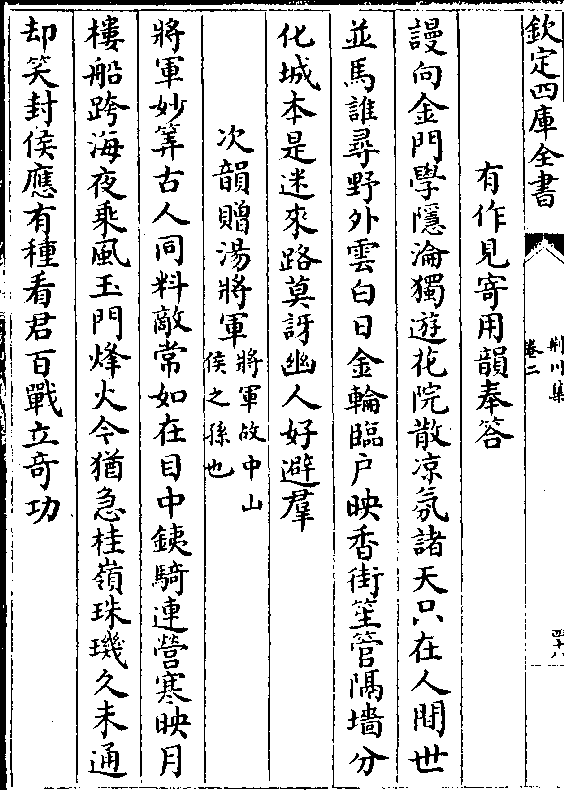 欽定四庫全書
荆川集
卷二
四十八
有作見寄用韻奉答
謾向金門學隱淪獨遊花院散凉氛諸天只在人間世
並馬誰尋野外雲白日金輪臨户映香街笙管隔墻分
化城本是迷來路莫訝幽人好避羣
次韻贈湯將軍將軍故中山
侯之孫也
將軍妙筭古人同料敵常如在目中鐵騎連營寒映月
樓船跨海夜乘風玉門烽火今猶急桂嶺珠璣久未通
却笑封侯應有種看君百戰立竒功